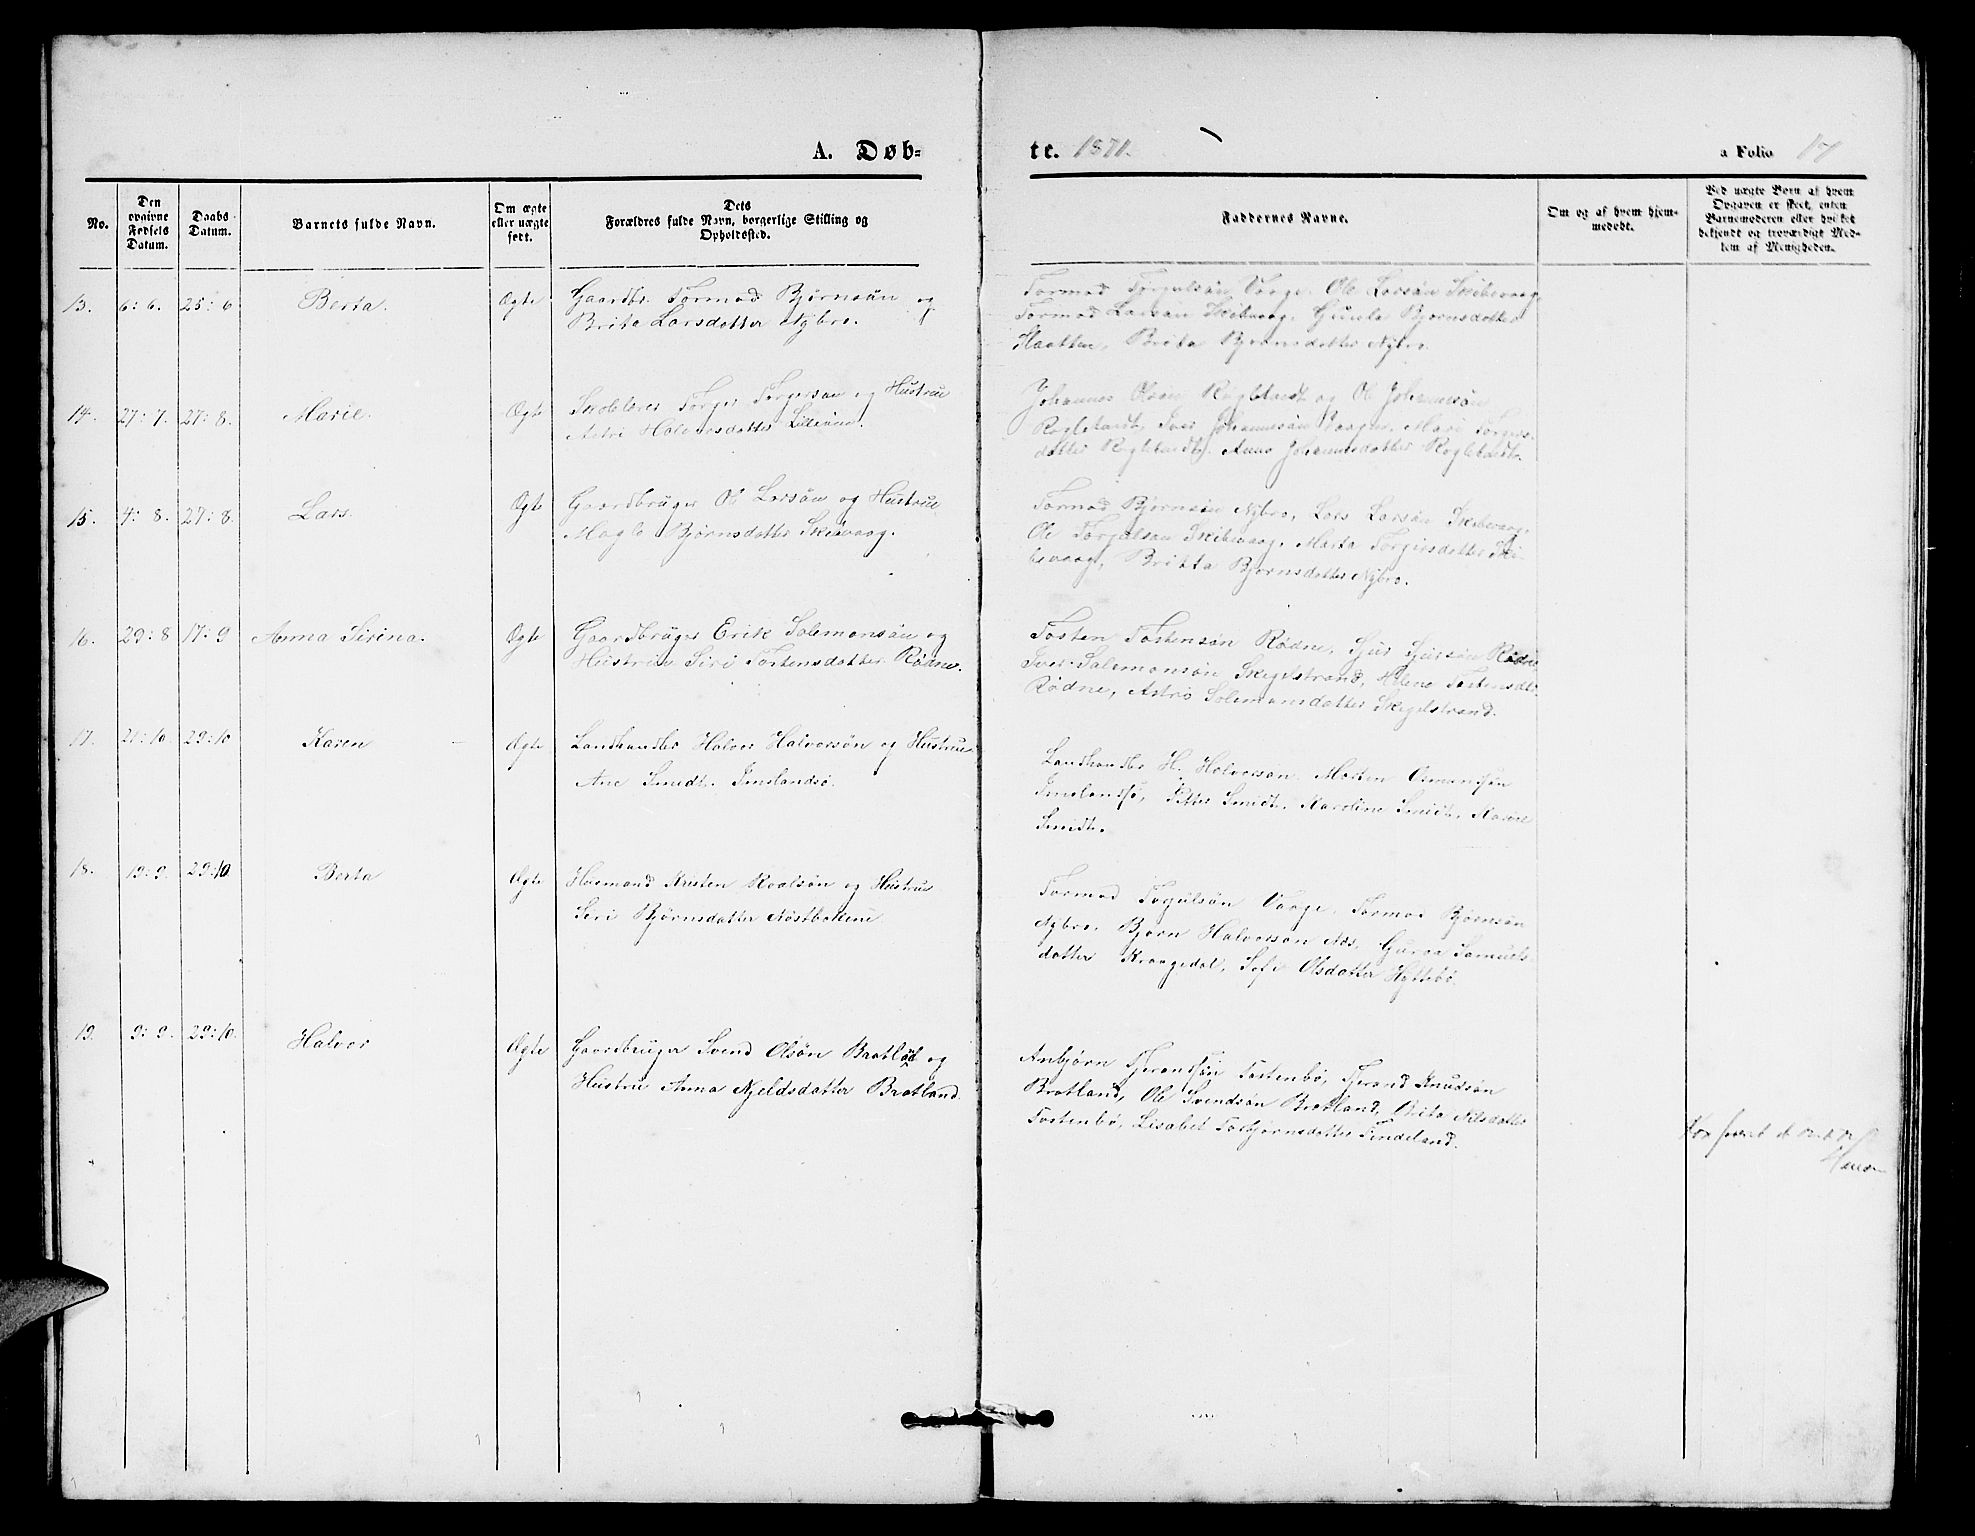 A. Døb-
te. 1871.
a Folio 17
No.
Den opgivne Fødsels Datum.
Daabs Datum.
Barnets fulde Navn.
Om ægte eller uægte født.
Dets
Forældres fulde Navn, borgerlige Stilling og
Opholdssted.
Faddernes Navne.
Om og af hvem hjem-
medøbt.
Ved uægte Børn af hvem
Opgaven er skeet, enten
Barnemoderen eller hvilket
bekjendt og troværdigt Med-
lem af Menigheden.
13. 6:6. 25:6 Berta. Ægte Gaardbr. Tormod Bjørnsön og
Brita Larsdatter Nybro.
Tormod Torgulsön Vaage. Ol Larsön Skibevaag,
Tormod Larsön Skibevaag. Gunla Bjørnsdatter
Brita Bjørnsdatter Nybro.
14. 27:7. 27:8. Marie. Ægte Torger Torgersön og Hustrue
Astri Halvorsdatter
Johannes Olsön og Ol Johannesön
Iver Johannesön Vaage. Mari Torgers-
datter Anna Johannesdatter
15. 4:8. 27:8. Lars. Ægte Gaardbruger Ol Larsön og Hustrue
Magla Bjørnsdatter Skibevaag.
Tormod Bjørnsön Nybro, Lars Larsön Skibevaag,
Ole Torgulsön Skibevaag. Marta Torgersdatter Ski-
bevaag, Britta Bjørnsdatter Nybro.
16. 29:8 17:9 Anna Serina. Ægte Gaardbruger Erik Salemonsön og
Hustrue Siri Tostensdatter Rødne.
Tosten Tostensøn Rødne, Sjur Sjursøn Rødne
Iver Salemonsön Skegelstrand, Helene Tostensdtr.
Rødne, Astri Salemonsdatter Skegelstrand.
17. 21:10. 29:10 Karen Ægte Landhandler Halvor Halvorsön og Hustrue
Ane Smidt. Imslandsö.
Landhandler H. Halvorsön. Morten Osmundsön
Imslandsö, Peter Smidt, Karoline Smidt,
Smidt.
18. 19:9. 29:10. Berta Ægte Husmand Kristen Roalsön og Hustrue
Siri Bjørnsdatter Nöstbakkene.
Tormod Torgulsön Vaage, Tormod Bjørnsön
Nybro. Bjørn Halvorsön Næs, Guroa Samuels-
datter Kraagedal, Sofi Olsdatter Hyttebö.
19. 9:9. 29:10. Halvor Ægte Gaardbruger Svend Olsön Bratland og
Hustru Anna Njeldsdatter Bratland.
Anbjørn Tjerandsön Tostenbö, Tjerand Knudsön
Bratland, Ole Svendsön Bratland, Brita Nilsdatter
Tostenbö, Lisabet Torbjørnsdatter Tindeland.